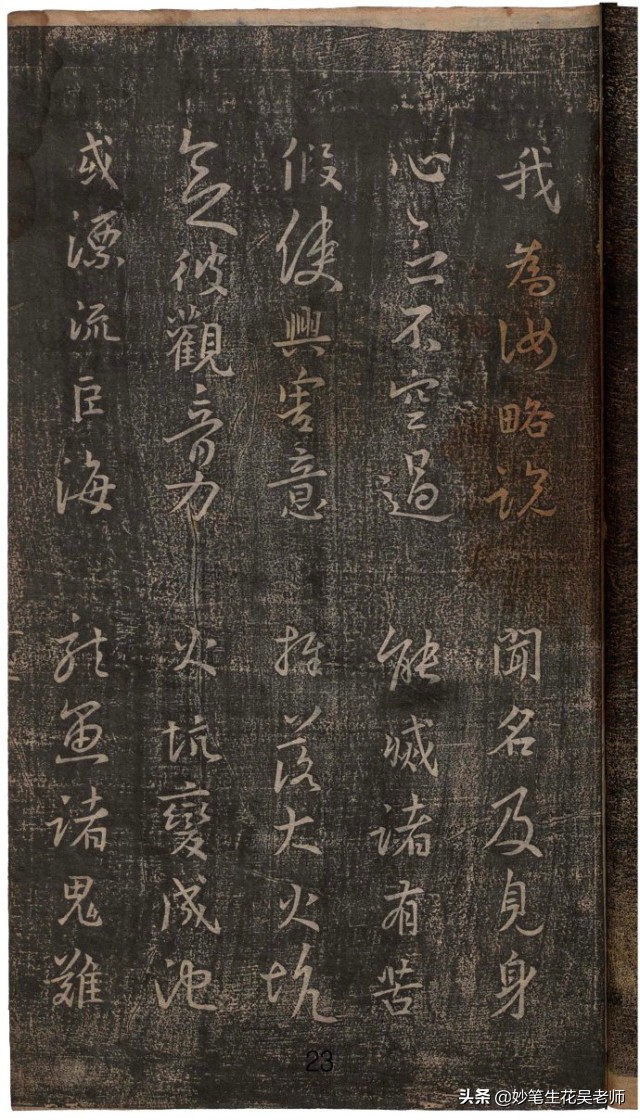 我為汝略說 聞名及見身
心念不空過 能滅諸有苦
假使興害意 推落大火坑
念彼觀音力 火坑變成池
或漂流巨海 龍魚諸鬼難
23
头条 @妙笔生花吴老师